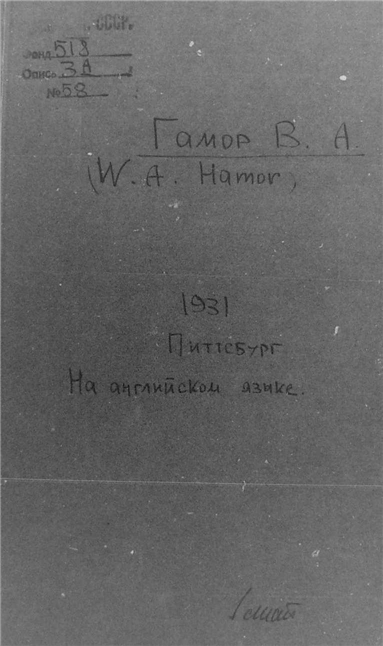 СССР.
Фонд 518
Опись 3А
№ 58
Гамор В. А
(W. A. Hamor)
1931
Питтсбург
На английском языке.